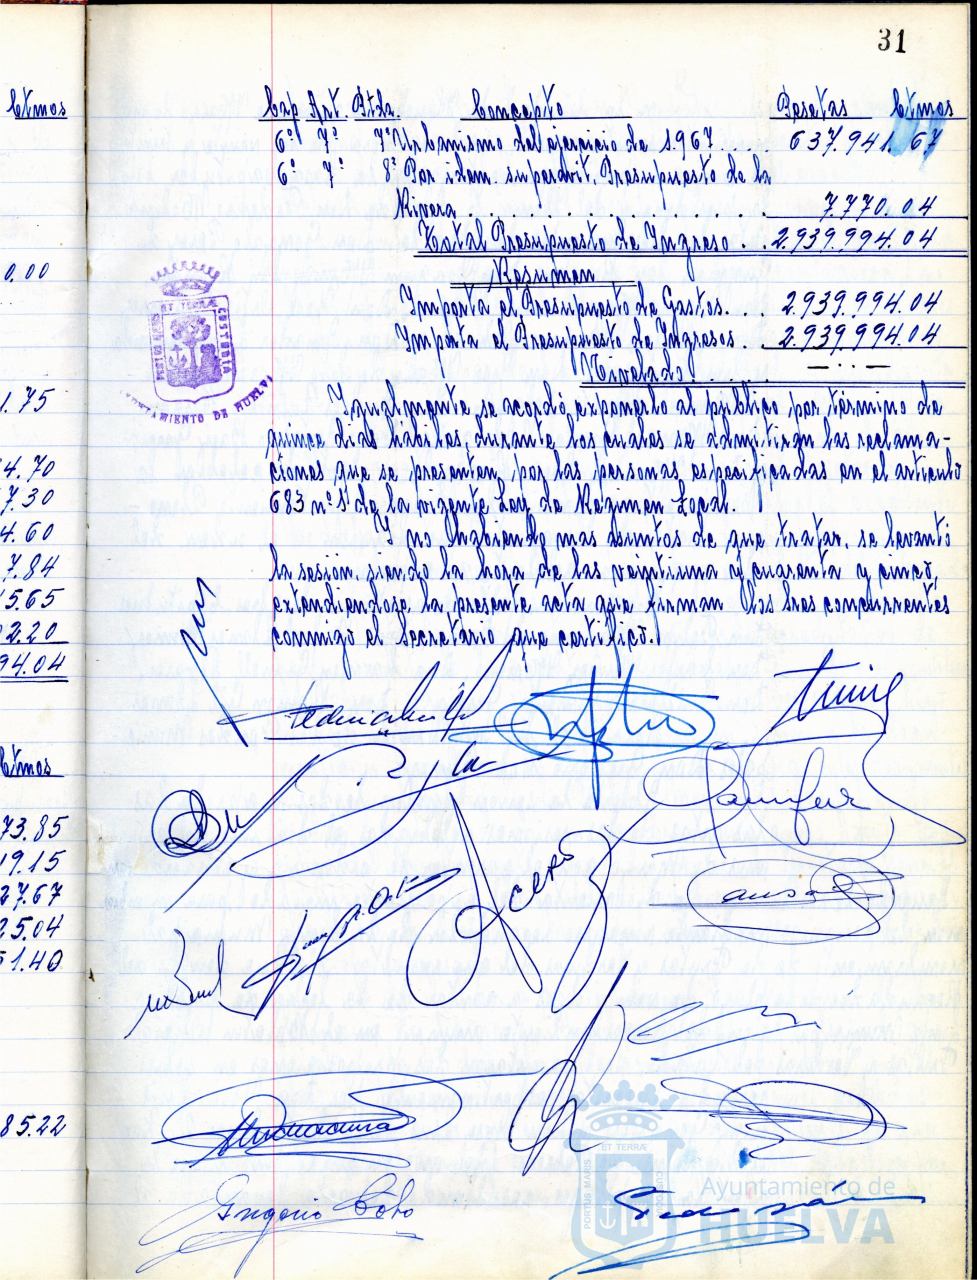 31
Ctmos
0.00
1.75
4.70
7.30
4.60
7.84
5.65
2.20
94.04
Ctmos
73.85
19.15
27.67
25.04
51.40
85.22
Cap Art. Ptda. Concepto Pesetas Ctmos
6º 7º 7º Urbanismo del ejercicio de 1.967 .... 637.941.67
6º 7º 8º Por idem. superavit. Presupuesto de la
Rivera . . . . . . . . . 7.770.04
Total Presupuesto de Ingreso . . 2.939.994.04
Resumen
Importa el Presupuesto de Gastos. . . 2.939.994.04
Importa el Presupuesto de Ingresos . . 2.939.994.04
Nivelado . . . . — .. —
Igualmente se acordó exponerlo al publico por término de
quince dias habiles, durante los cuales se admitiran las reclama-
ciones que se presenten por las personas especificadas en el articulo
683 nº 1º de la vigente Ley de Regimen Local.
Y no habiendo mas asuntos de que tratar, se levantó
la sesion, siendo la hora de las veintiuna y cuarenta y cinco,
extendiendose la presente acta que firman los Sres concurrentes
conmigo el Secretario que certifico.
PORTUS MARIS ET TERRÆ CUSTODIA
AYUNTAMIENTO DE HUELVA
Gregorio Soto
PORTUS MARIS ET TERRÆ
Ayuntamiento de
HUELVA